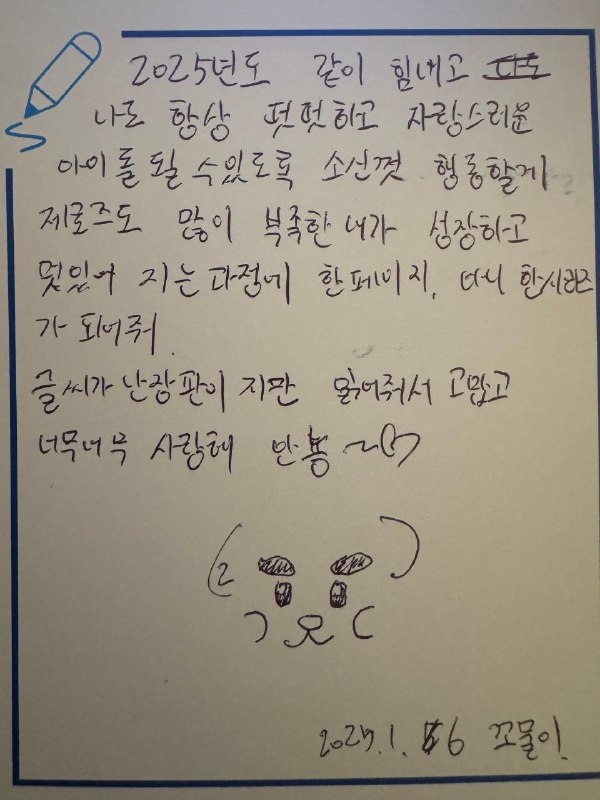 2025년도 같이 힘내고
나도 항상 떳떳하고 자랑스러운
아이돌 될 수 있도록 소신껏 행동할게
제로즈도 많이 부족한 내가 성장하고
멋있어 지는 과정에 한페이지, 아니 한시리즈
가 되어줘.
글씨가 난장판이지만 읽어줘서 고맙고
너무너무 사랑해 안뇽~
2025.1.6 꼬물이.